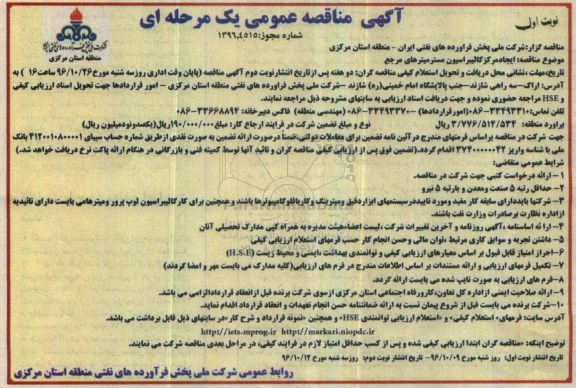 نوبت اول
آگهی مناقصه عمومی یک مرحله ای
شماره مجوز: ۱۳۹۶,۴۵۱۵
منطقه استان مرکزی
مناقصه گزار: شرکت ملی پخش فرآورده های نفتی ایران - منطقه استان مرکزی
موضوع مناقصه: ایجاد مرکز کالیبراسیون مستر میترهای مرجع
تاریخ، مهلت، نشانی محل دریافت و تحویل استعلام کیفی مناقصه گران: دو هفته پس از تاریخ انتشار نوبت دوم آگهی مناقصه (پایان وقت اداری روز سه شنبه مورخ ۹۶/۱۰/۲۶ ساعت ۱۶) به
آدرس: اراک - سه راهی شازند - جنب پالایشگاه امام خمینی (ره) شازند - شرکت ملی پخش فرآورده های نفتی منطقه استان مرکزی - امور قراردادها جهت تحویل اسناد ارزیابی کیفی
و HSE مراجعه حضوری نموده و جهت دریافت اسناد ارزیابی به سایتهای مشروحه ذیل مراجعه نمایند.
تلفن تماس: ۳۳۴۹۳۳۱۰-۰۸۶ (امور قراردادها) - ۳۳۴۹۳۳۷۰-۰۸۶ (مهندسی منطقه) فاکس دبیرخانه: ۳۳۶۶۸۸۹۴-۰۸۶
برآورد منطقه: ۳/۷۷۶/۵۱۴/۵۳۴ ریال نوع و مبلغ تضمین شرکت در فرآیند ارجاع کار: مبلغ ۱۹۰/۰۰۰/۰۰۰ ریال (یکصد و نود میلیون ریال)
جهت شرکت در مناقصه براساس فرمهای مندرج در آئین نامه تضمین برای معاملات دولتی، ضمناً در صورت ارائه تضمین به صورت نقدی از طریق شماره حساب سیبای ۲۱۷۴۰۰۱۰۸۰۰۰۱ بانک
ملی با شناسه واریز ۳۷۴۰۰۰۰۰۰۰۴۲ اقدام گردد. (تضمین فوق پس از ارزیابی کیفی مناقصه گران و تائید آنها توسط کمیته فنی و بازرگانی در هنگام ارائه پاکت نرخ دریافت خواهد شد.)
شرایط عمومی متقاضی:
۱- ارائه درخواست کتبی جهت شرکت در مناقصه.
۲- حداقل رتبه ۵ صنعت و معدن و یا رتبه ۵ نیرو
۳- شرکتها باید دارای سابقه کار مفید و مورد تایید در سیستمهای ابزار دقیق و میترینگ و کار با فلوکامپیوترها باشند و همچنین برای کار کالیبراسیون لوپ پرور و میترهامی بایست دارای تائیدیه
از اداره نظارت بر صادرات وزارت نفت باشند.
۴- ارائه اساسنامه، آگهی روزنامه و آخرین تغییرات شرکت، لیست اعضاء هیئت مدیره به همراه کپی مدارک تحصیلی آنان
۵- داشتن تجربه و سوابق کاری مرتبط، توان مالی و حسن انجام کار حسب فرمهای استعلام ارزیابی کیفی.
۶- احراز امتیاز قابل قبول بر اساس معیارهای ارزیابی کیفی و توانمندی بهداشت، ایمنی و محیط زیست (H.S.E)
۷- تکمیل فرمهای ارزیابی و ارائه مستندات بر اساس اطلاعات مندرج در فرم های ارزیابی (کلیه مدارک می بایست مهر و امضا گردند)
۸- فرم های ارزیابی به صورت تایپ شده می بایست ارائه گردد.
۹- ارائه صلاحیت ایمنی از اداره کل تعاون، کار و رفاه اجتماعی استان مرکزی از سوی شرکت برنده قبل از انعقاد قرارداد الزامی می باشد.
۱۰- شرکت برنده می بایست قبل از شروع پیمان نسبت به ارائه ضمانتنامه حسن انجام تعهدات و انعقاد قرارداد اقدام نماید.
آدرس سایت: فرمهای «استعلام کیفی» و «استعلام ارزیابی توانمندی HSE» و همچنین «نمونه قرارداد و شرح کار» در سایتهای ذیل قابل برداشت می باشد.
http://iets.mprog.ir http://markazi.niopdc.ir
توضیح اینکه: «مناقصه گران ابتدا ارزیابی کیفی شده و پس از کسب حداقل امتیاز لازم در فرآیند کیفی، در مراحل بعدی مناقصه شرکت می نمایند.
تاریخ انتشار نوبت اول: روز شنبه مورخ ۹۶/۱۰/۰۹ - تاریخ انتشار نوبت دوم: روز سه شنبه مورخ ۹۶/۱۰/۱۲
روابط عمومی شرکت ملی پخش فرآورده های نفتی منطقه استان مرکزی